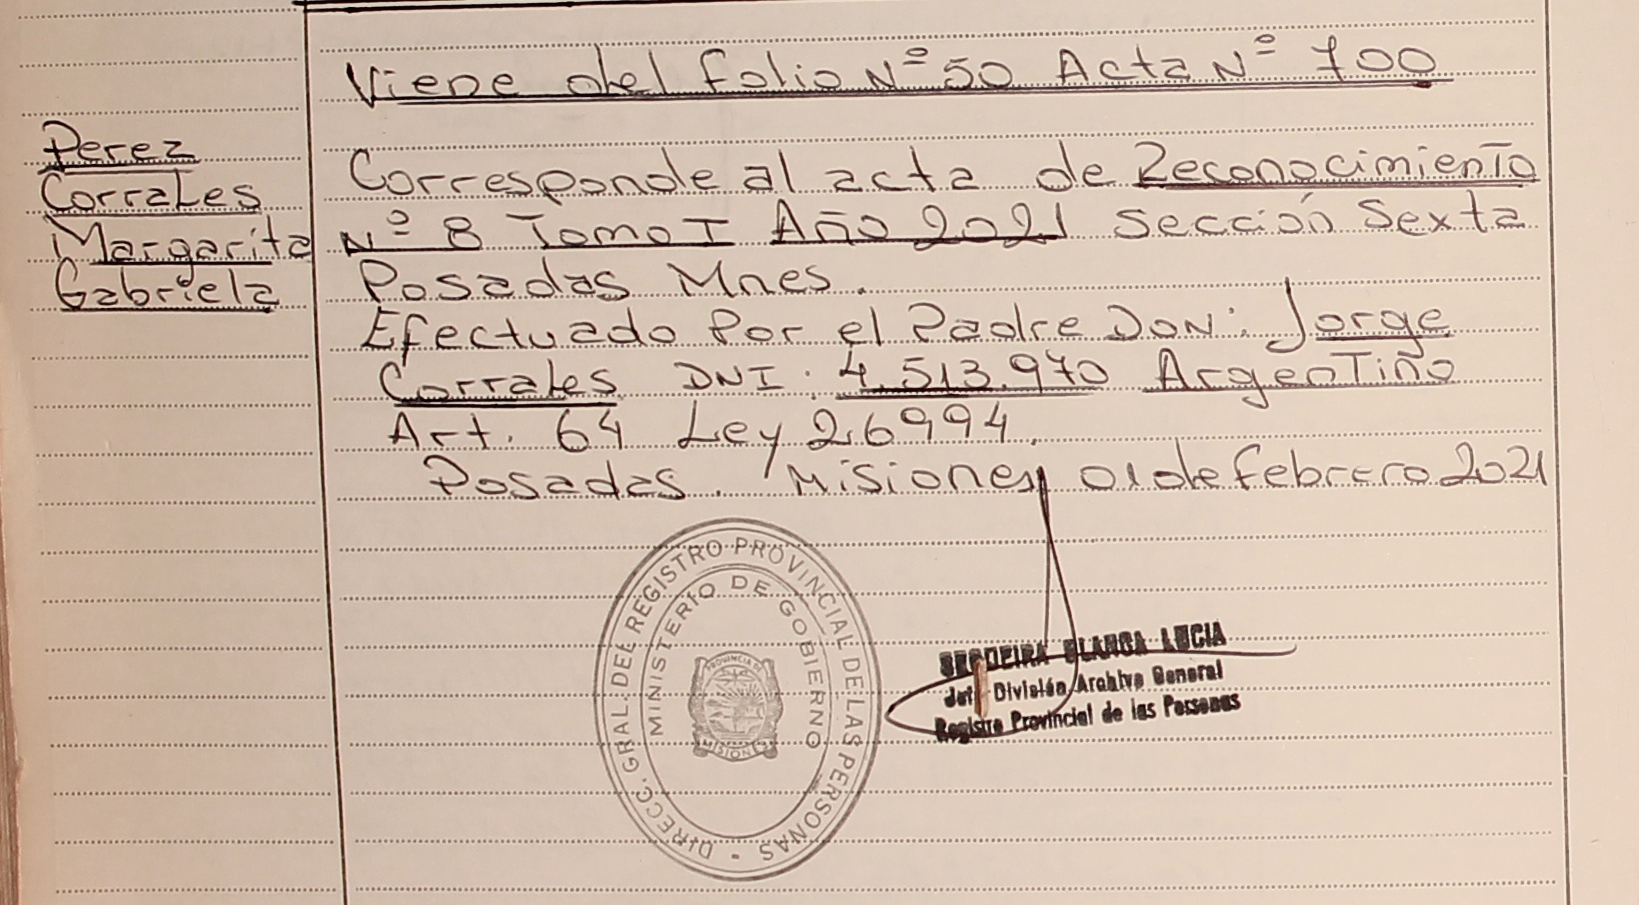 Viene del folio Nº 50 Acta Nº 700
Perez
Corrales
Margarita
Gabriela
Corresponde al acta de Reconocimiento
Nº 8 Tomo I Año 2021 Sección Sexta
Posadas Mnes.
Efectuado Por el Padre DON: Jorge
Corrales DNI. 4.513.970 Argentino
Art. 64 Ley 26994.
Posadas. Misiones 01 de febrero 2021
DIRECC. GRAL. DEL REGISTRO PROVINCIAL DE LAS PERSONAS
MINISTERIO DE GOBIERNO
PROVINCIA DE
MISIONES
BLANCA LUCIA
División Archivo General
Registro Provincial de las Personas